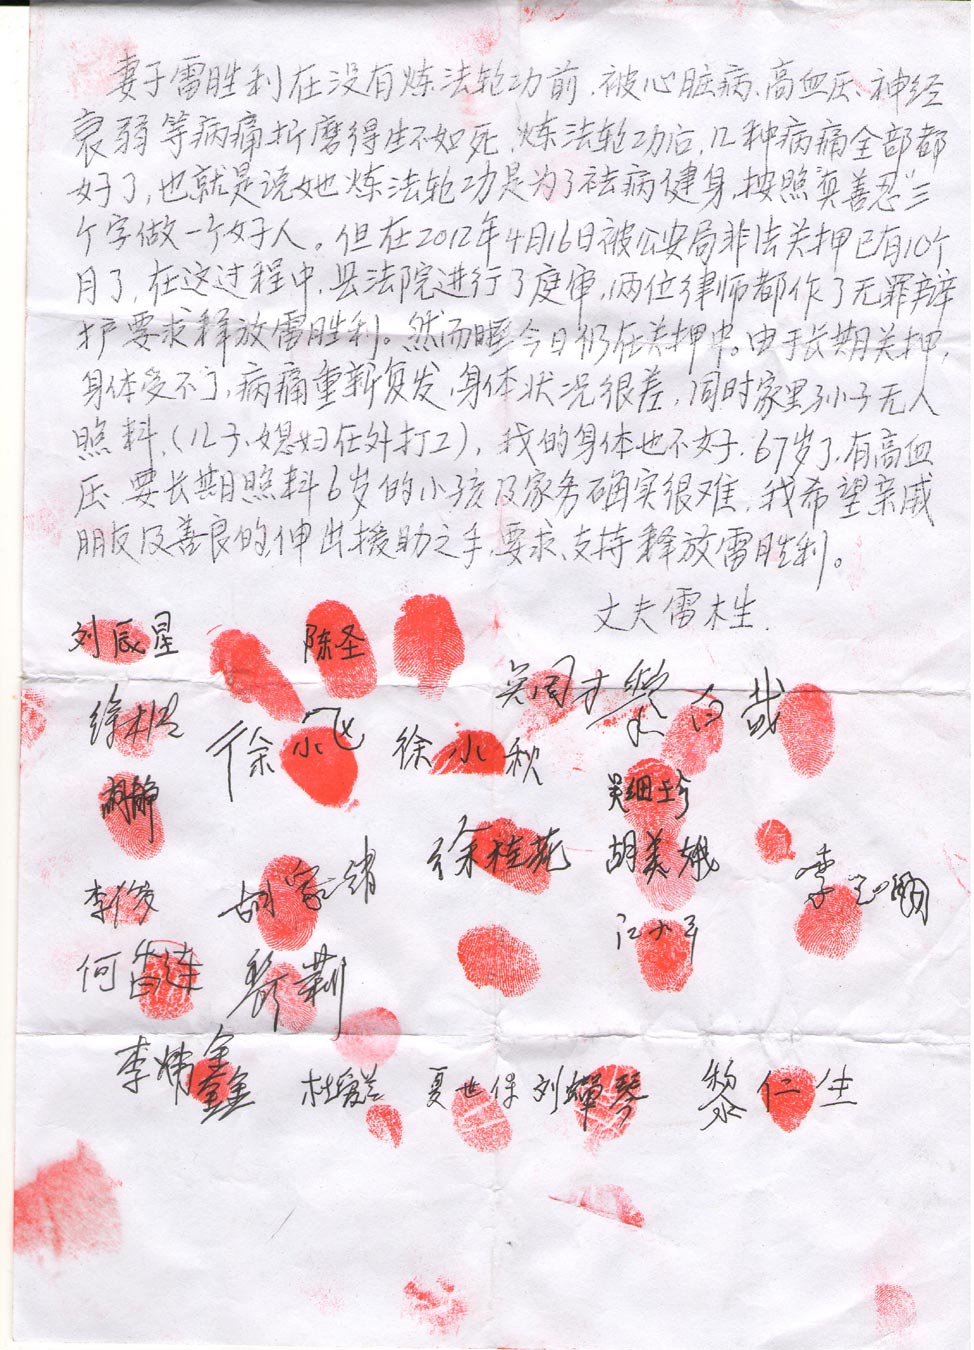 妻子雷胜利在没有炼法轮功前，被心脏病、高血压、神经
衰弱等病痛折磨得生不如死，炼法轮功后，几种病痛全部都
好了，也就是说她炼法轮功是为了祛病健身，按照“真善忍”三
个字做一个好人。但在2012年4月16日被公安局非法关押已有10个
月了，在这过程中，县法院进行了庭审，两位律师都作了无罪辩
护要求释放雷胜利。然而今日仍在关押中。由于长期关押，
身体受不了，病痛重新复发，身体状况很差，同时家里孙子无人
照料，（儿子、媳妇在外打工），我的身体也不好，67岁了，有高血
压，要长期照料6岁的小孩及家务确实很难，我希望亲戚
朋友及善良的伸出援助之手，要求、支持释放雷胜利。
丈夫雷木生
刘辰星
陈圣
徐小飞
徐小秋
胡静
吴细珍
徐桂花
胡美娥
李俊
胡家绪
江小平
何昔连
李炜鑫
杜爱兰
夏世保
刘蝉琴
黎仁生